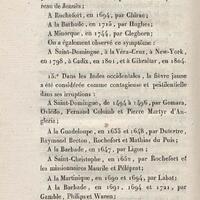 reau de Jonnès ;
A Rochefort, en 1694, par Chirac ;
A la Barbade, en 1715, par Hughes ;
A Minorque, en 1744, par Cleghorn ;
On a également observé ce symptôme :
A Saint-Domingue, à la Véra-Cruz, à New-York,
en 1798, à Cadix, en 1801, et à Gibraltar, en 1804.
15.° Dans les Indes occidentales, la fièvre jaune
a été considérée comme contagieuse et pestilentielle
dans ses irruptions :
A Saint-Domingue, de 1494 à 1496, par Gomara,
Oviédo, Fernand Colomb et Pierre Martyr d'An-
gleria ;
A la Guadeloupe, en 1635 et 1648, par Dutertre,
Raymond Breton, Rochefort et Mathias du Puis ;
A la Barbade, en 1647, par Ligon ;
A Saint-Christophe, en 1652, par Rochefort et
les missionnaires Maurile et Péliprat ;
A la Martinique, en 1690 et 1694, par Labat ;
A la Barbade, en 1691, 1694 et 1721, par
Gamble, Philips et Waren ;